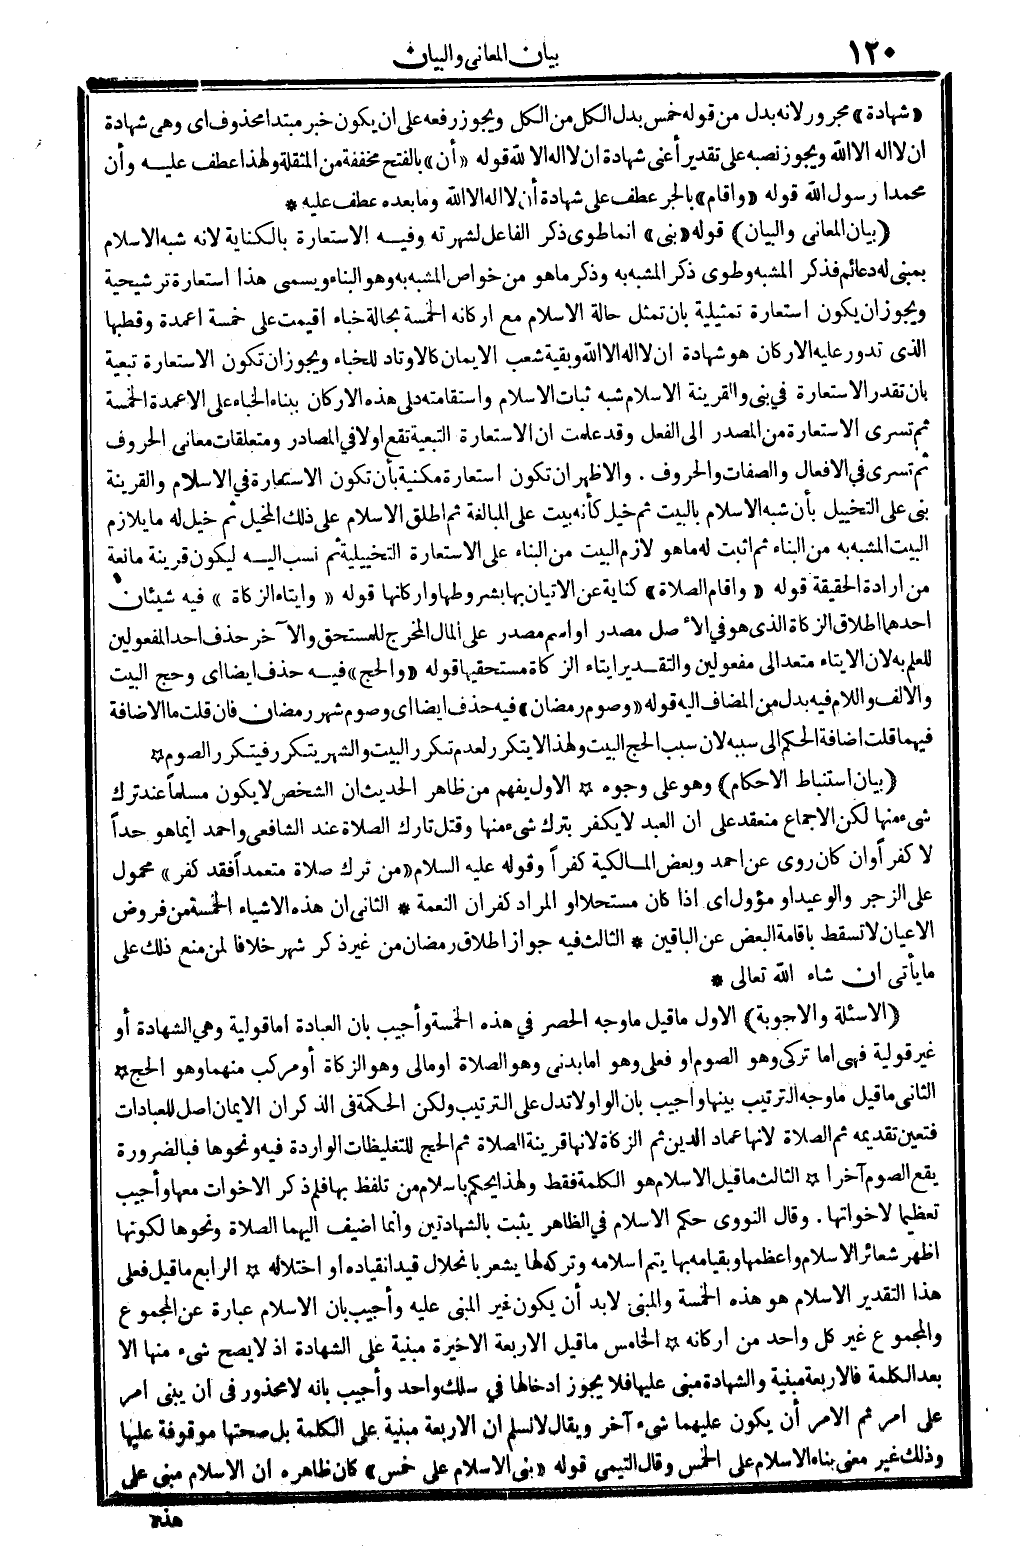 ١٢٠
بيان المعاني والبيان
«شهادة» مجرور لانه بدل من قوله خمس بدل الكل من الكل ويجوز رفعه على ان يكون خبر مبتدا محذوف اى وهى شهادة
ان لا اله الا الله ويجوز نصبه على تقدير أعنى شهادة ان لا اله الا الله قوله «أن» بالفتح مخففة من المثقلة ولهذا عطف عليه وأن
محمدا رسول الله قوله «واقام» بالجر عطف على شهادة أن لا اله الا الله وما بعده عطف عليه *
(بيان المعانى والبيان) قوله «بنى» انما طوى ذكر الفاعل لشهرته وفيه الاستعارة بالكناية لانه شبه الاسلام
بمبنى له دعائم فذكر المشبه وطوى ذكر المشبه به وذكر ما هو من خواص المشبه به وهو البناء ويسمى هذا استعارة ترشيحية
ويجوز ان يكون استعارة تمثيلية بان تمثل حالة الاسلام مع اركانه الخمسة بحالة خباء اقيمت على خمسة اعمدة وقطبها
الذى تدور عليه الاركان هو شهادة ان لا اله الا الله وبقية شعب الايمان كالاوتاد للخباء ويجوز ان تكون الاستعارة تبعية
بان تقدر الاستعارة في بنى والقرينة الاسلام شبه ثبات الاسلام واستقامته على هذه الاركان ببناء الخباء على الاعمدة الخمسة
ثم تسرى الاستعارة من المصدر الى الفعل وقد علمت ان الاستعارة التبعية تقع اولا في المصادر ومتعلقات معانى الحروف
ثم تسرى في الافعال والصفات والحروف . والاظهر ان تكون استعارة مكنية بأن تكون الاستعارة في الاسلام والقرينة
بنى على التخييل بأن شبه الاسلام بالبيت ثم خيل كأنه بيت على المبالغة ثم اطلق الاسلام على ذلك المخيل ثم خيل له ما يلازم
البيت المشبه به من البناء ثم اثبت له ما هو لازم البيت من البناء على الاستعارة التخييلية ثم نسب اليه ليكون قرينة مانعة
من ارادة الحقيقة قوله «واقام الصلاة» كناية عن الاتيان بها بشروطها واركانها قوله «وايتاء الزكاة» فيه شيئان
احدهما اطلاق الزكاة الذى هو في الأصل مصدر او اسم مصدر على المال المخرج للمستحق والآخر حذف احد المفعولين
للعلم به لان الايتاء متعد الى مفعولين والتقدير ايتاء الزكاة مستحقيها قوله «والحج» فيه حذف ايضا اى وحج البيت
والالف واللام فيه بدل من المضاف اليه قوله «وصوم رمضان» فيه حذف ايضا اى وصوم شهر رمضان فان قلت ما الاضافة
فيهما قلت اضافة الحكم الى سببه لان سبب الحج البيت ولهذا لا يتكرر لعدم تكرر البيت والشهر يتكرر فيتكرر الصوم ☆
(بيان استنباط الاحكام) وهو على وجوه ☆ الاول يفهم من ظاهر الحديث ان الشخص لا يكون مسلماً عند ترك
شىء منها لكن الاجماع منعقد على ان العبد لا يكفر بترك شىء منها وقتل تارك الصلاة عند الشافعى واحمد انما هو حداً
لا كفراً وان كان روى عن احمد وبعض المالكية كفراً وقوله عليه السلام «من ترك صلاة متعمداً فقد كفر» محمول
على الزجر والوعيد او مؤول اى اذا كان مستحلا او المراد كفران النعمة * الثانى ان هذه الاشياء الخمسة من فروض
الاعيان لا تسقط باقامة البعض عن الباقين * الثالث فيه جواز اطلاق رمضان من غير ذكر شهر خلافا لمن منع ذلك على
ما يأتى ان شاء الله تعالى *
(الاسئلة والاجوبة) الاول ما قيل ما وجه الحصر في هذه الخمسة وأجيب بان العبادة اما قولية وهي الشهادة أو
غير قولية فهى اما تركى وهو الصوم او فعلى وهو اما بدنى وهو الصلاة او مالى وهو الزكاة أو مركب منهما وهو الحج ☆
الثانى ما قيل ما وجه الترتيب بينها واجيب بان الواو لا تدل على الترتيب ولكن الحكمة فى الذكر ان الايمان اصل للعبادات
فتعين تقديمه ثم الصلاة لانها عماد الدين ثم الزكاة لانها قرينة الصلاة ثم الحج للتغليظات الواردة فيه ونحوها فبالضرورة
يقع الصوم آخرا ☆ الثالث ما قيل الاسلام هو الكلمة فقط ولهذا يحكم باسلام من تلفظ بها فلم ذكر الاخوات معها وأجيب
تعظيما لاخواتها . وقال النووى حكم الاسلام في الظاهر يثبت بالشهادتين وانما اضيف اليهما الصلاة ونحوها لكونها
اظهر شعائر الاسلام واعظمها وبقيامه بها يتم اسلامه وتركه لها يشعر بانحلال قيد انقياده او اختلاله ☆ الرابع ما قيل فعلى
هذا التقدير الاسلام هو هذه الخمسة والمبنى لابد أن يكون غير المبنى عليه وأجيب بان الاسلام عبارة عن المجموع
والمجموع غير كل واحد من اركانه ☆ الخامس ما قيل الاربعة الاخيرة مبنية على الشهادة اذ لا يصح شىء منها الا
بعد الكلمة فالاربعة مبنية والشهادة مبنى عليها فلا يجوز ادخالها في سلك واحد وأجيب بانه لا محذور فى ان يبنى امر
على امر ثم الامر أن يكون عليهما شىء آخر ويقال لا نسلم ان الاربعة مبنية على الكلمة بل صحتها موقوفة عليها
وذلك غير معنى بناء الاسلام على الخمس وقال التيمى قوله «بنى الاسلام على خمس» كان ظاهره ان الاسلام مبنى على
هذه